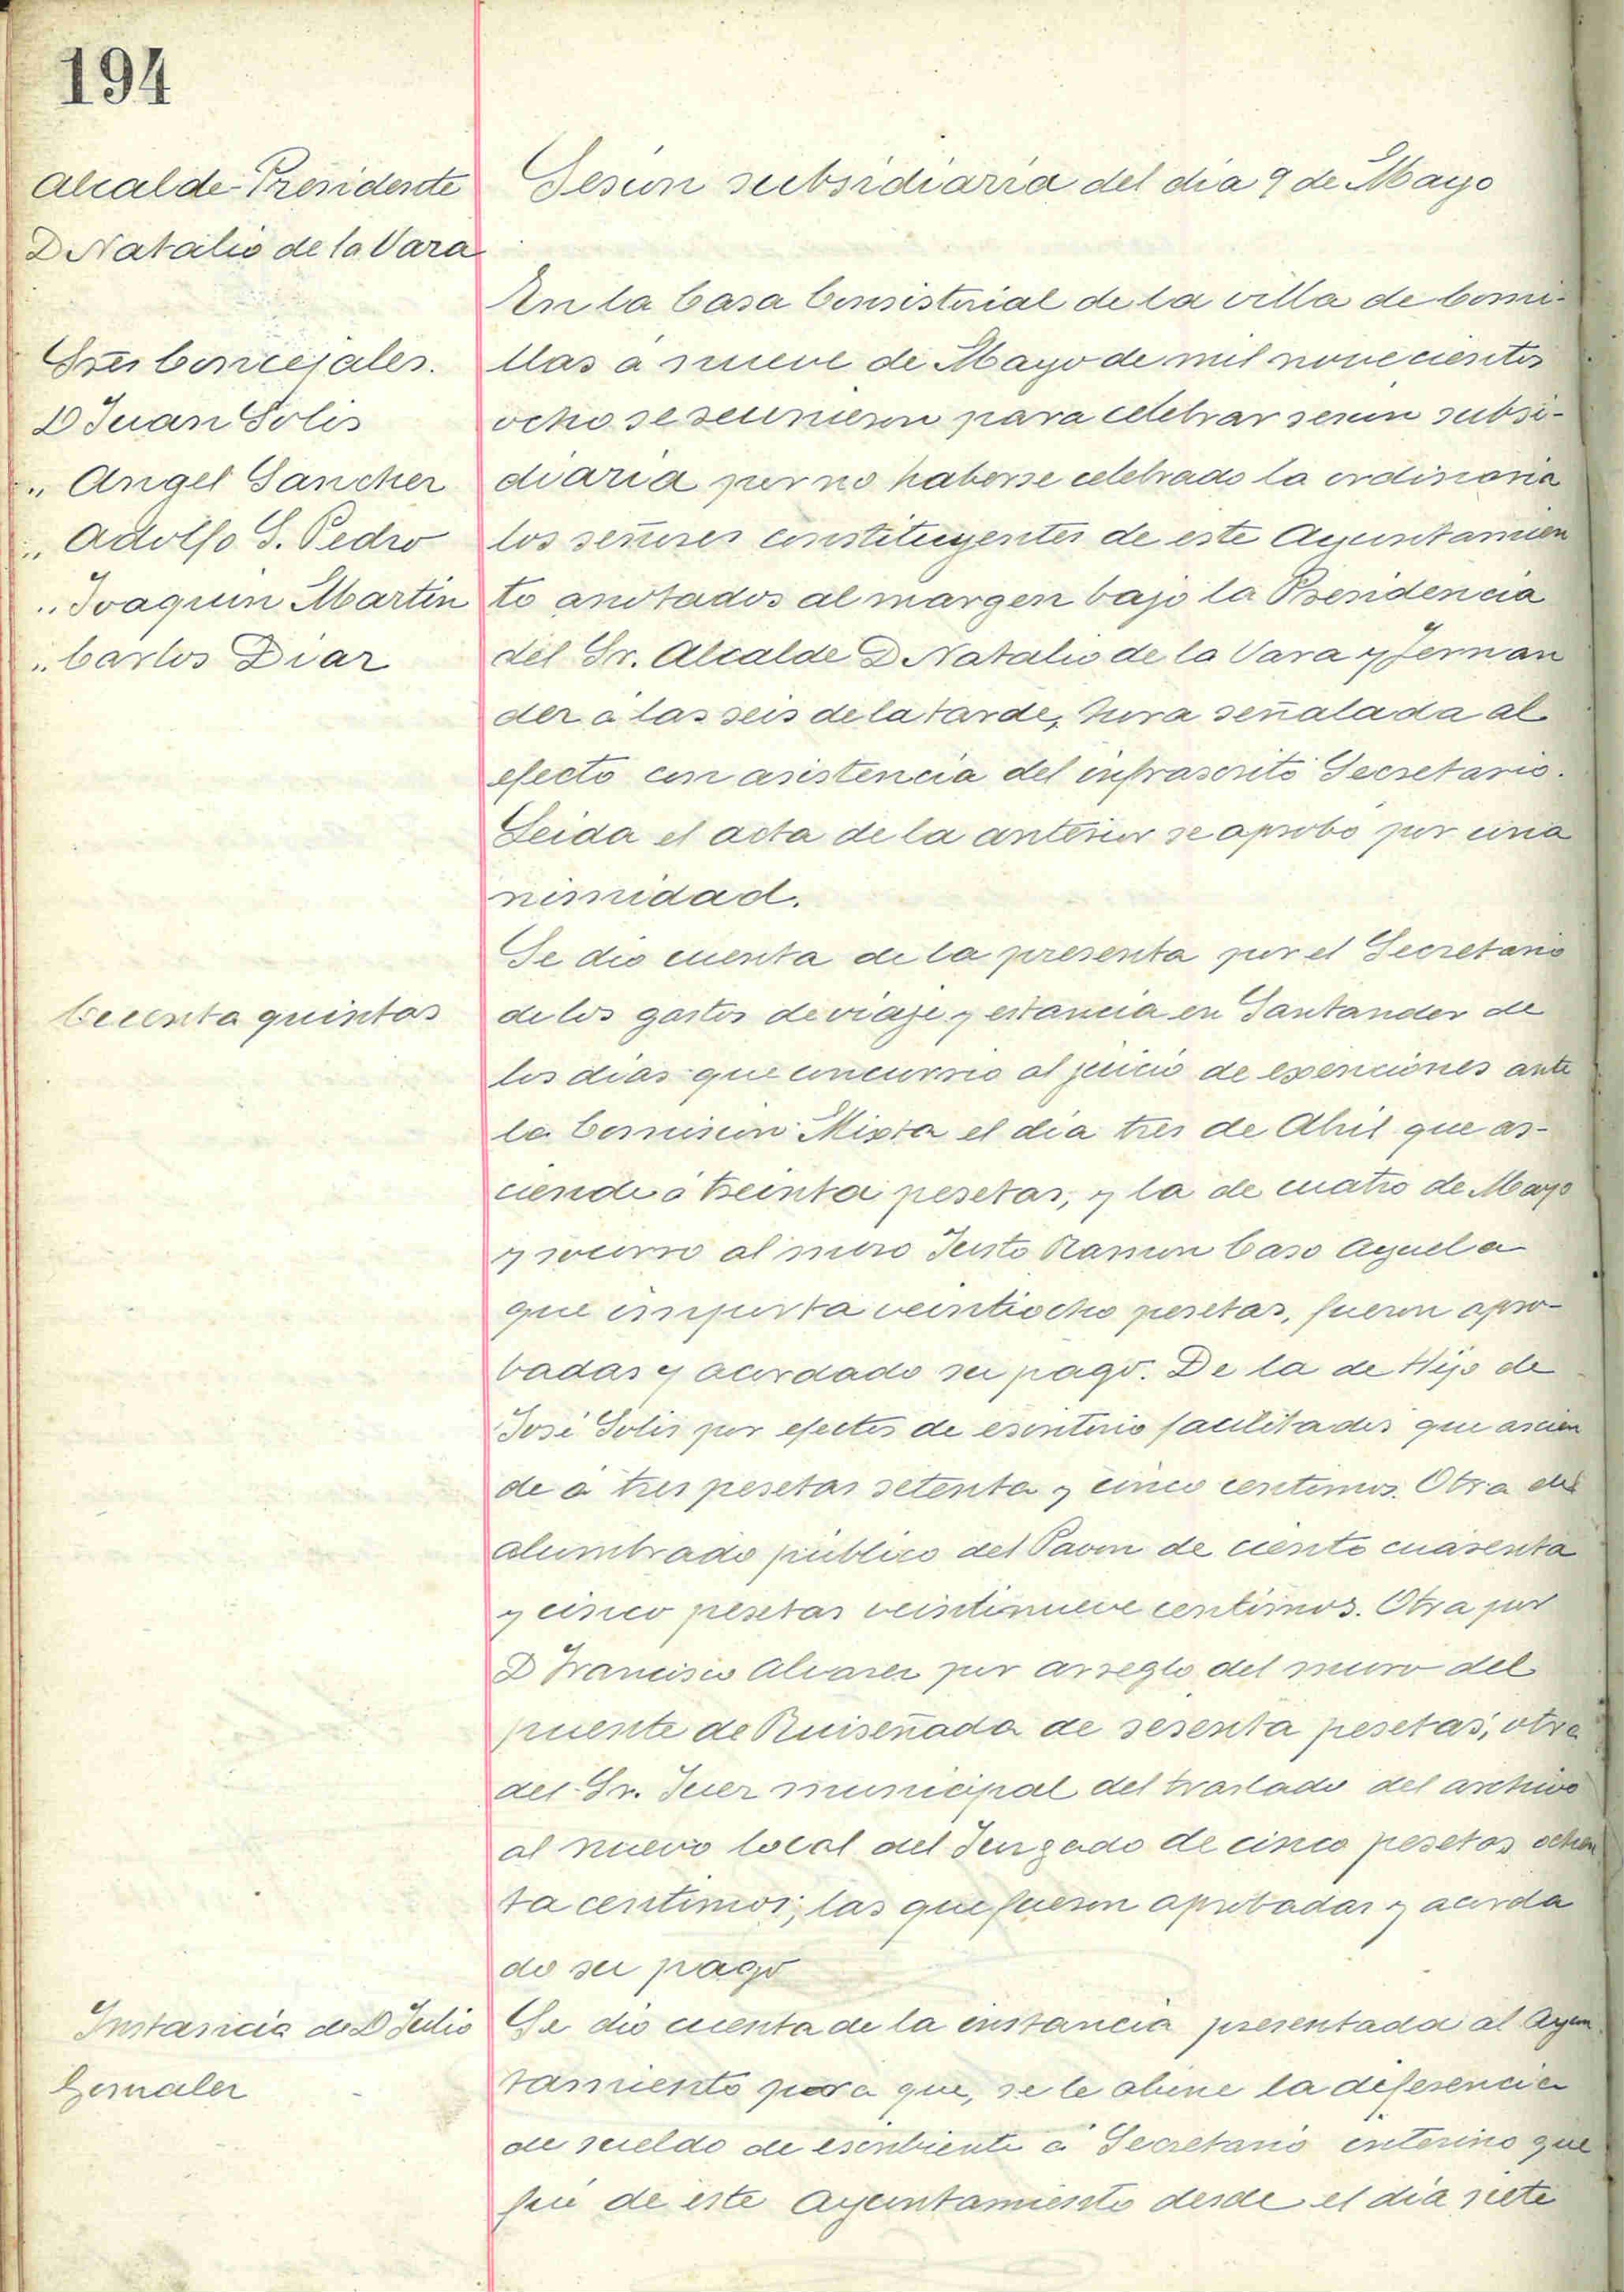 194
Alcalde-Presidente
D Natalio de la Vara
Sres Concejales.
D Juan Solis
" Angel Sanchez
" Adolfo S. Pedro
" Joaquin Martin
" Carlos Diaz
Sesion subsidiaria del dia 9 de Mayo
En la Casa Consistorial de la villa de Comi-
llas á nueve de Mayo de mil novecientos
ocho se reunieron para celebrar sesion subsi-
diaria por no haberse celebrado la ordinaria
los señores constituyentes de este Ayuntamien
to anotados al margen bajo la Presidencia
del Sr. Alcalde D Natalio de la Vara y Fernan
dez a las seis de la tarde, hora señalada al
efecto con asistencia del infrascrito Secretario.
Leida el acta de la anterior se aprobó por una
nimidad.
Cuenta quintas
Se dio cuenta de la presenta por el Secretario
de los gastos de viaje y estancia en Santander de
los dias que concurrio al juicio de exenciones ante
la Comision Mixta el dia tres de Abril que as-
ciende á treinta pesetas, y la de cuatro de Mayo
y socorro al mozo Justo Ramon Caso Ayuela
que importa veintiocho pesetas, fueron apro-
badas y acordado su pago. De la de Hijo de
José Solis por efectos de escritorio facilitados que ascien
de á tres pesetas setenta y cinco centimos. Otra del
alumbrado público del Pavon de ciento cuarenta
y cinco pesetas veintinueve centimos. Otra por
D Francisco Alvarez por arreglo del muro del
puente de Ruiseñada de sesenta pesetas, otra
del Sr. Juez municipal del traslado del archivo
al nuevo local del Juzgado de cinco pesetas ochen
ta centimos; las que fueron aprobadas y acorda
do su pago
Instancia de D Julio
Gonzalez
Se dio cuenta de la instancia presentada al Ayun
tamiento para que, se le abone la diferencia
de sueldo de escribiente á Secretario interino que
fué de este Ayuntamiento desde el dia siete